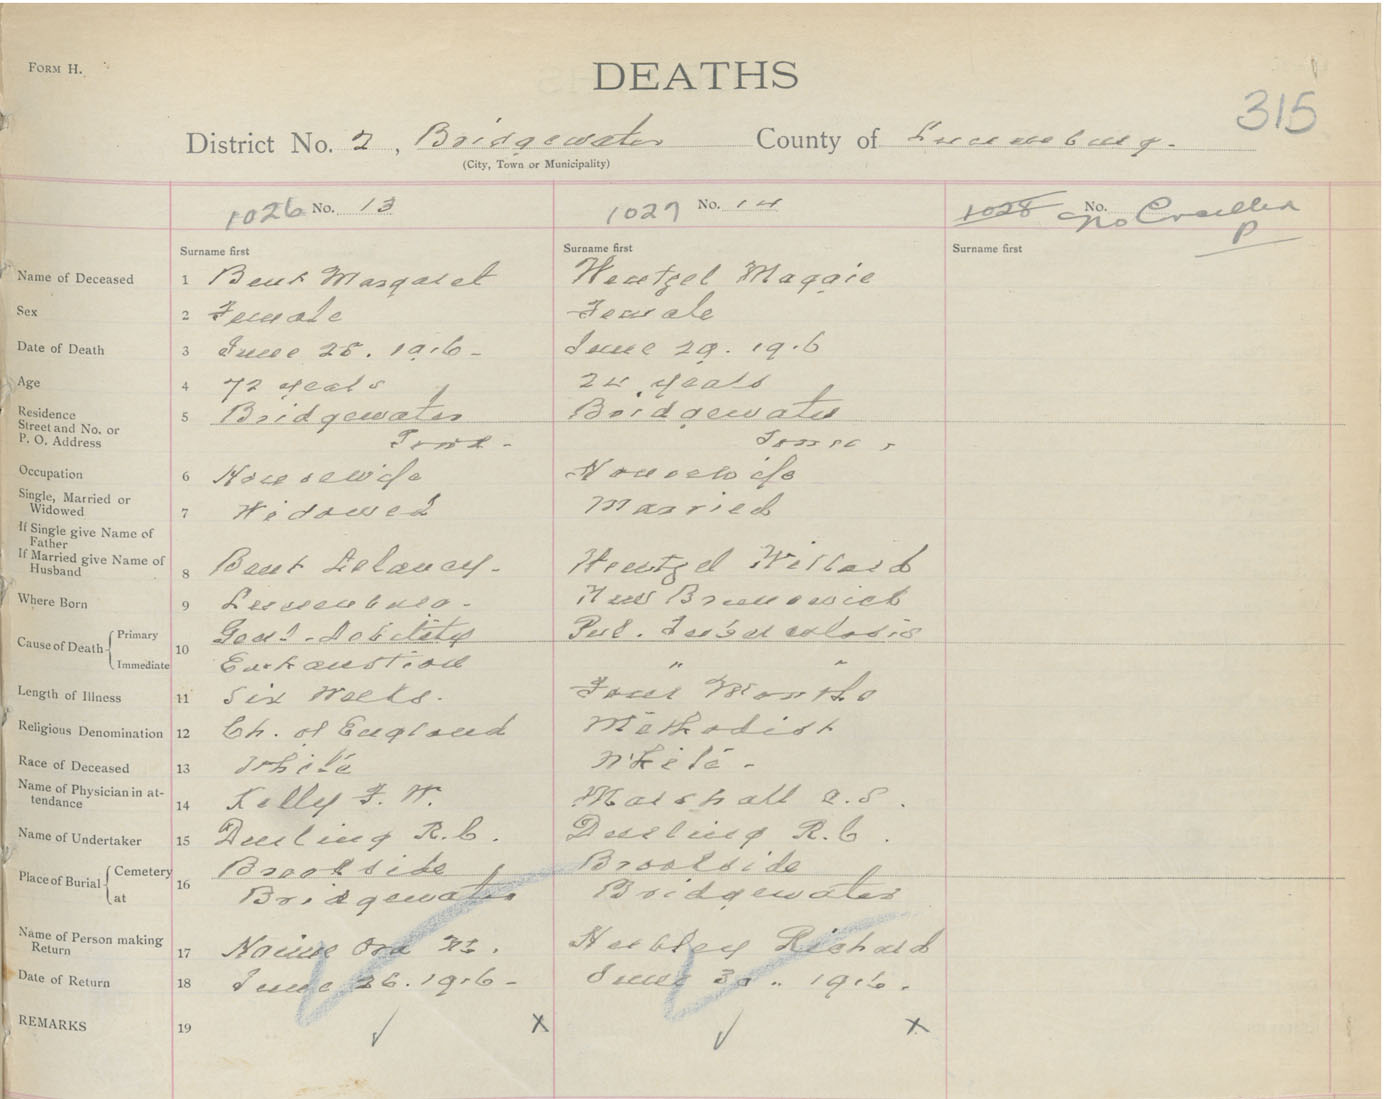 FORM H.
DEATHS
315
District No. 2, Bridgewater County of Lunenburg.
(City, Town or Municipality)
1026 No. 13 1027 No. 14 1028 No. No
Surname first Surname first Surname first
Name of Deceased 1 Bent Margaret Wentzel Maggie
Sex 2 Female Female
Date of Death 3 June 25. 1916- June 29. 1916
Age 4 72 years 24 years
Residence
Street and No. or
P. O. Address 5 Bridgewater Bridgewater
Occupation 6 Housewife Housewife
Single, Married or
Widowed 7 Widowed Married
If Single give Name of
Father
If Married give Name of
Husband 8 Bent Delancy- Wentzel Willard
Where Born 9 Lunenburg- New Brunswick
Cause of Death Primary 10 Genl. Debility Pul. Tuberculosis
Immediate Exhaustion " "
Length of Illness 11 Six Weeks. Four Months
Religious Denomination 12 Ch. of England Methodist
Race of Deceased 13 White White-
Name of Physician in at-
tendance 14 Kelly F. W. Marshall a.S.
Name of Undertaker 15 Durling R.C. Durling R.C.
Place of Burial Cemetery 16 Brookside Brookside
at Bridgewater Bridgewater
Name of Person making
Return 17 Hebbley Richard
Date of Return 18 June 26. 1916- June 30 .. 1916.
REMARKS 19 x x